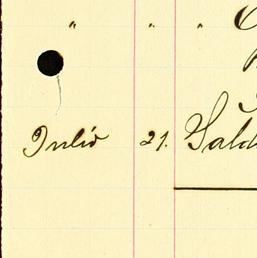 " " "
Julio 21. Sald